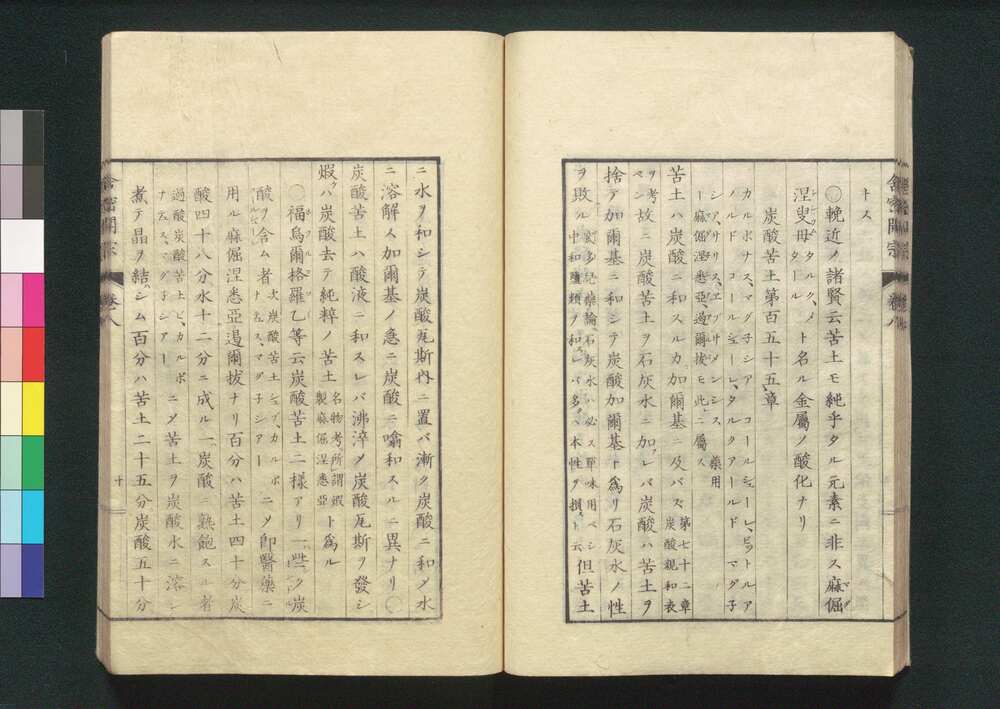 トス
〇輓近ノ諸賢云苦土モ純乎タル元素ニ非ス麻倔
涅叟母タルク、メタールト名ル金屬ノ酸化ナリ
炭酸苦土第百五十五章
カルボナス、マグ子シア コールシューレ、ビットルア
ノルド コールシューレ、タルクアールド マグ子
シア、サリス、エプサメンシス 藥用
ー麻倔涅悉亞、過爾拔モ此ニ屬ス
苦土ハ炭酸ニ和スルカ加爾基ニ及バズ第七十二章炭酸親和表
ヲ考ヘ故ニ炭酸苦土ヲ石灰水ニ加レバ炭酸ハ苦土ヲ
捨テ加爾基ニ和シテ炭酸加爾基ト爲リ石灰水ノ性
ヲ敗ル石灰水ハ必ス單味用ベシ中和鹽類ヲ和スレバ多クハ本性ヲ損ストモ云但苦土
ニ水ヲ和シテ炭酸瓦斯内ニ置バ漸ク炭酸ニ和メ水
ニ溶解ス加爾基ノ急ニ炭酸ニ噏和スルニ異ナリ〇
炭酸苦土ハ酸液ニ和スレバ沸淬メ炭酸瓦斯ヲ發シ
煆ケハ炭酸去テ純粹ノ苦土名物考所謂煆製麻倔涅悉亞ト爲ル
〇福烏爾格羅乙等云炭酸苦土二様アリ一些ク炭
酸ヲ含ム者次炭酸苦土シュブ、カルボナス、マグ子シアーニメ即醫藥ニ
用ル麻倔涅悉亞過爾拔ナリ百分ハ苦土四十分炭
酸四十八分水十二分ニ成ル一、炭酸ニ熟飽スル者
過酸炭酸苦土ビ、カルボナス、マグ子シアーニメ苦土ヲ炭酸水ニ溶シ
煮テ晶ヲ結シム百分ハ苦土二十五分炭酸五十分
舎密開宗
卷八
十